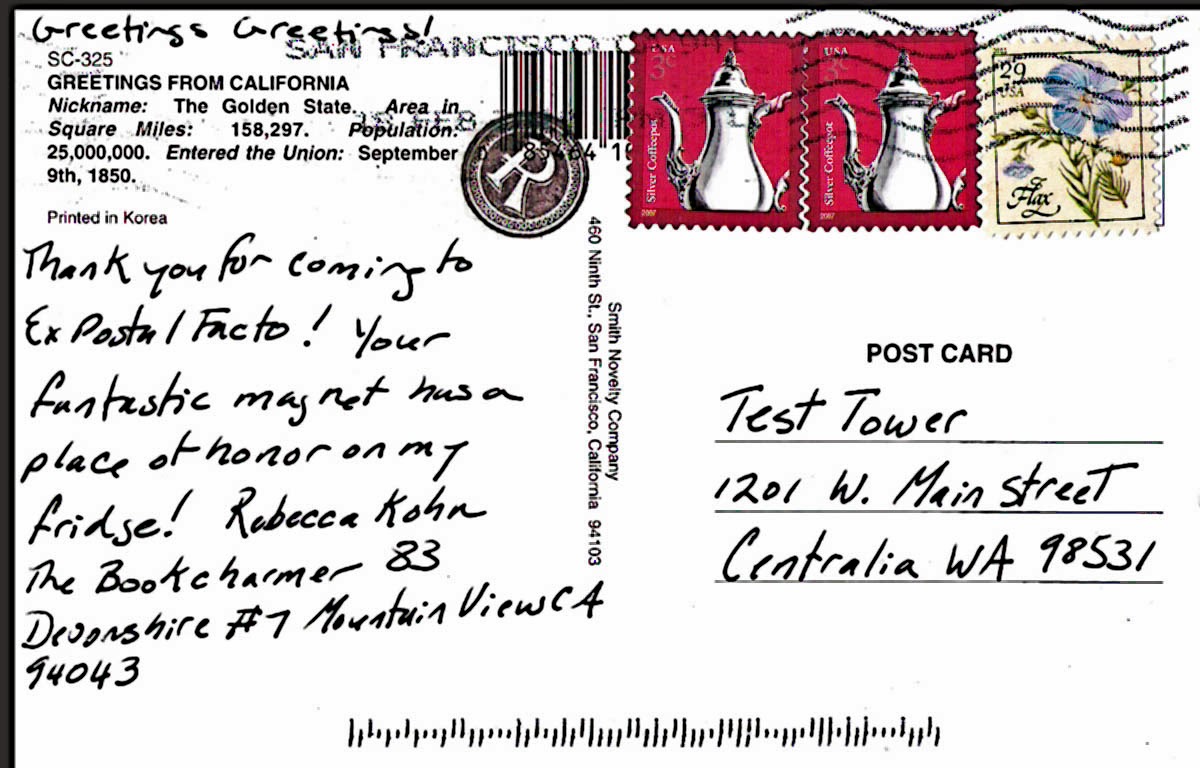 Greetings Greetings!
SAN FRANCISCO
SC-325
GREETINGS FROM CALIFORNIA
Nickname: The Golden State. Area in
Square Miles: 158,297. Population:
25,000,000. Entered the Union: September
9th, 1850.
Printed in Korea
R
Thank you for coming to
Ex Postal Facto! Your
fantastic magnet has a
place of honor on my
fridge! Rebecca Kohn
The Bookcharmer 83
Devonshire #7 Mountain View CA
94043
Smith Novelty Company
460 Ninth St., San Francisco, California 94103
USA
3c
Silver Coffeepot
2007
USA
3c
Silver Coffeepot
2007
29
USA
Flax
POST CARD
Test Tower
1201 W. Main street
Centralia WA 98531